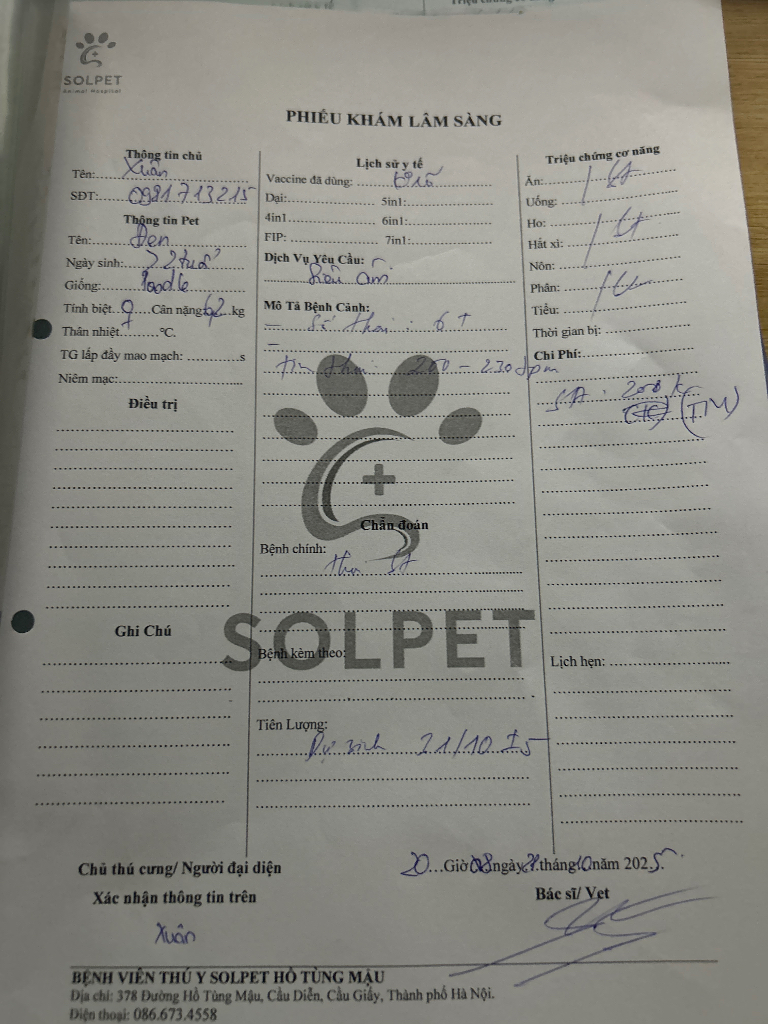 SOLPET
Animal Hospital
PHIẾU KHÁM LÂM SÀNG
Thông tin chủ
Tên: Xuân
SĐT: 0981713215
Thông tin Pet
Tên: Đen
Ngày sinh: >2 tuổi
Giống: Poodle
Tính biệt ♀ Cân nặng 6,2 kg
Thân nhiệt °C.
TG lấp đầy mao mạch: s
Niêm mạc:
Điều trị
Ghi Chú
Lịch sử y tế
Vaccine đã dùng:
Dại: 5in1:
4in1 6in1:
FIP: 7in1:
Dịch Vụ Yêu Cầu:
Siêu âm
Mô Tả Bệnh Cảnh:
- Số thai: 6 +
-
Tim thai: 200 - 230 bpm
Chẩn đoán
Bệnh chính:
Bệnh kèm theo:
Tiên Lượng:
Dự sinh 21/10 ± 5
Triệu chứng cơ năng
Ăn:
Uống:
Ho:
Hắt xì:
Nôn:
Phân:
Tiểu:
Thời gian bị:
Chi Phí:
SA: 200 k
(TM)
Lịch hẹn:
SOLPET
Chủ thú cưng/ Người đại diện
Xác nhận thông tin trên
Xuân
20 Giờ 08 ngày tháng 10 năm 2025.
Bác sĩ/ Vet
BỆNH VIỆN THÚ Y SOLPET HỒ TÙNG MẬU
Địa chỉ: 378 Đường Hồ Tùng Mậu, Cầu Diễn, Cầu Giấy, Thành phố Hà Nội.
Điện thoại: 086.673.4558